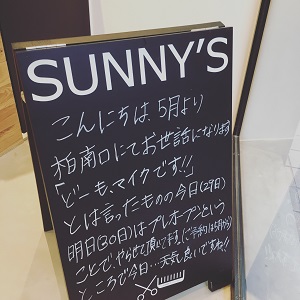 SUNNY'S
こんにちは、5月より
柏南口にてお世話になります
「どーも、マイクです!!」
とは言ったものの今日(29日)
明日(30日)はプレオープンという
ことで、やらせて頂いてます。(ご予約は5月から)
ところで今日…天気良いですね!!